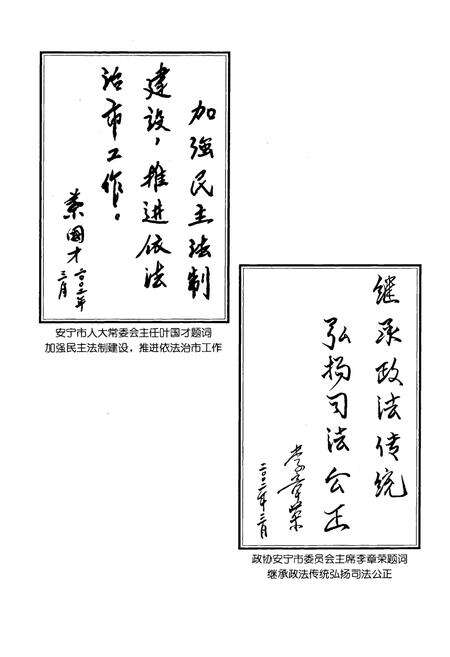 加强民主法制
建设，推进依法
治市工作。
葉國才
二〇〇二年
三月
安宁市人大常委会主任叶国才题词
加强民主法制建设，推进依法治市工作
继承政法传统
弘扬司法公正
李章荣
政协安宁市委员会主席李章荣题词
继承政法传统弘扬司法公正